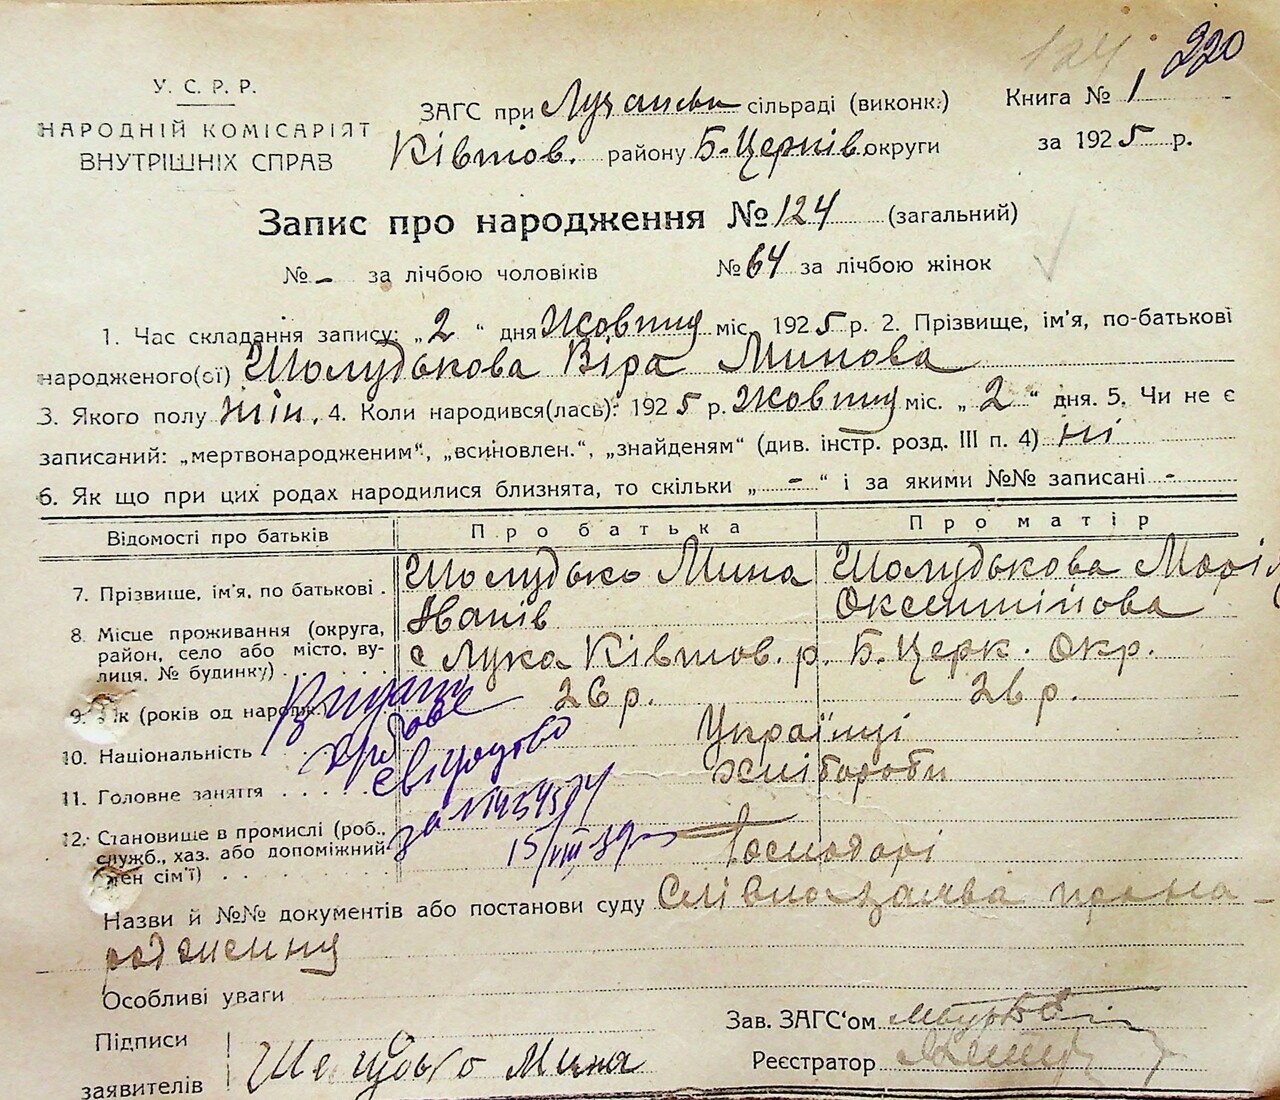 124 220
У. С. Р. Р.
НАРОДНІЙ КОМІСАРІЯТ
ВНУТРІШНІХ СПРАВ
ЗАГС при Лучанськ сільраді (виконк.)
Ківшов. району Б.-Церків. округи
Книга № 1
за 1925 р.
Запис про народження № 124 (загальний)
№ - за лічбою чоловіків № 64 за лічбою жінок
1. Час складання запису: „2“ дня Жовтня міс. 1925 р. 2. Прізвище, ім'я, по-батькові
народженого(ої) Шолудькова Віра Минова
3. Якого полу жін. 4. Коли народився(лась): 1925 р. Жовтня міс. „2“ дня. 5. Чи не є
записаний: „мертвонародженим“, „всиновлен.“, „знайденям“ (див. інстр. розд. III п. 4) ні
6. Як що при цих родах народилися близнята, то скільки „-“ і за якими №№ записані -
Відомості про батьків Про батька Про матір
7. Прізвище, ім'я, по батькові . Шолудько Мина Іванів Шолудькова Марія Оксентійова
8. Місце проживання (округа, район, село або місто, вулиця, № будинку) . . . с Лука Ківшов. р. Б. Церк. Окр.
9. Вік (років од народж.) 26 р. 26 р.
10. Національність Українці
11. Головне заняття . . . . хлібороби
12. Становище в промислі (роб., служб., хаз. або допоміжний член сім'ї) . . . . Господарі
Видано
свідоцтво
за №
15/VIII 39р
Назви й №№ документів або постанови суду Слівна заява про на-
родженну
Особливі уваги
Підписи
заявителів Шелудько Мина
Зав. ЗАГС'ом
Реєстратор